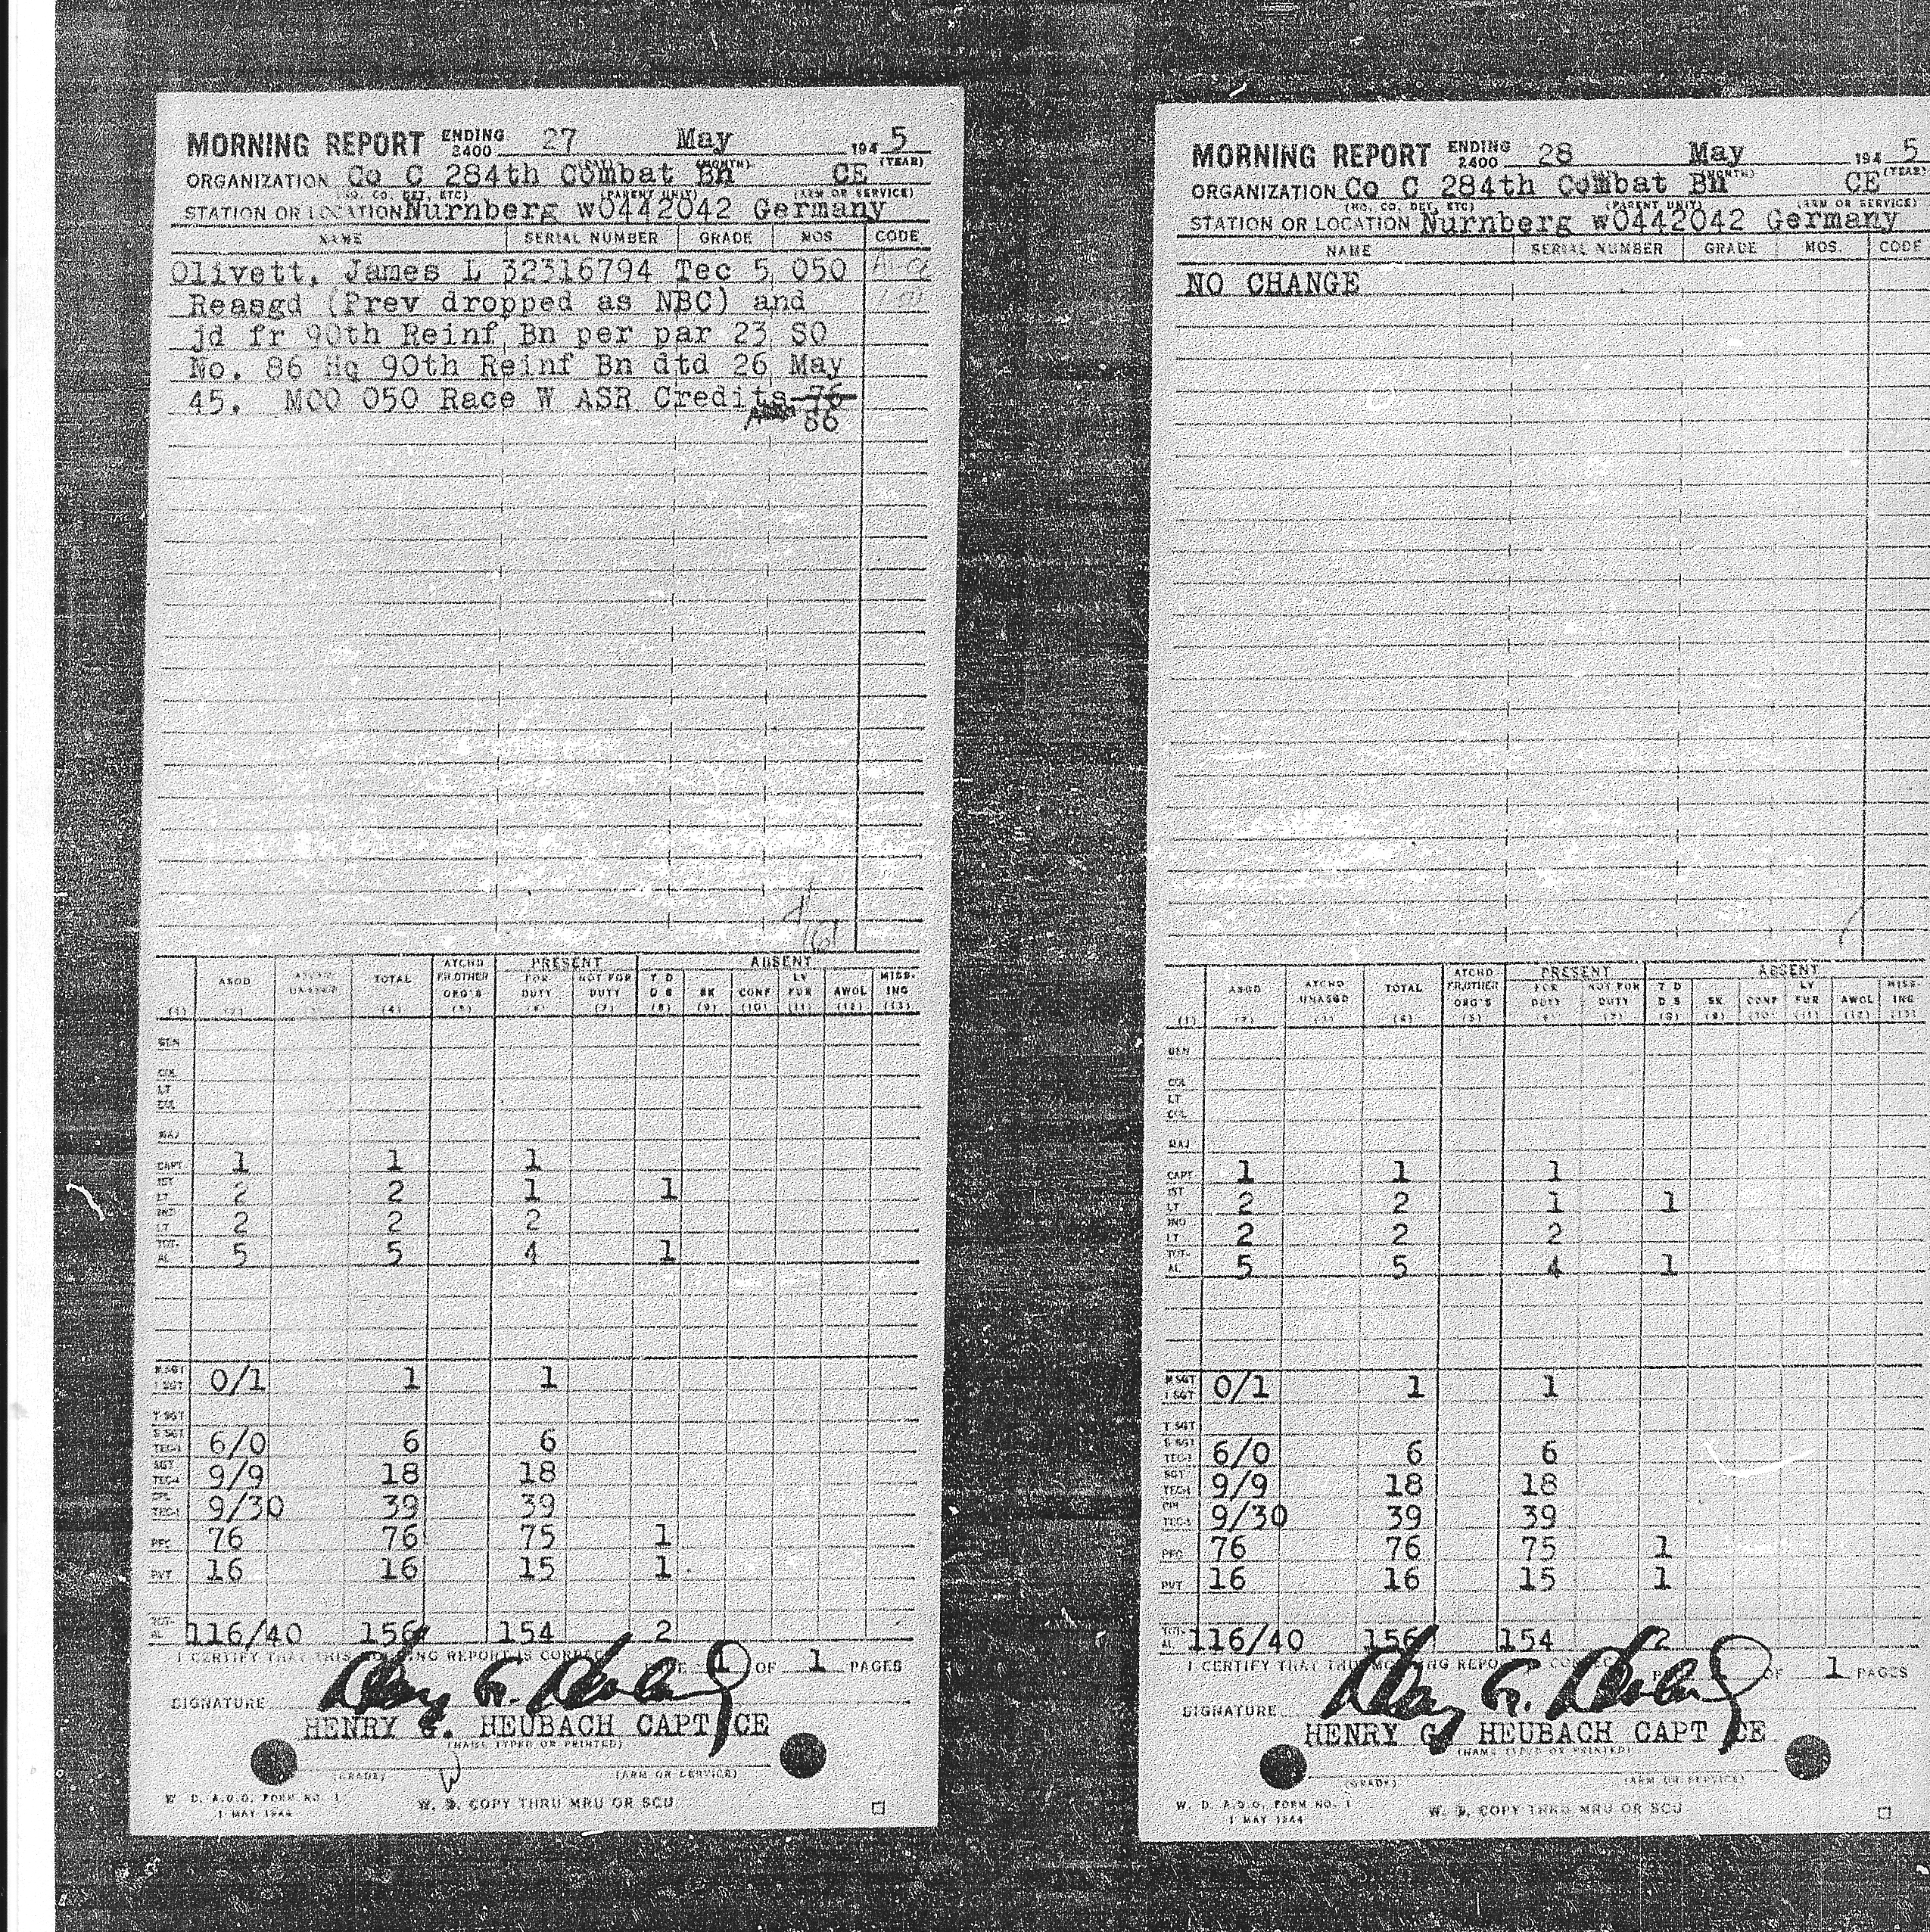 MORNING REPORT ENDING 2400 27 May 1945
(DAY) (MONTH) (YEAR)
ORGANIZATION Co C 284th Combat Bn CE
(NO. CO. DET, ETC) (PARENT UNIT) (ARM OR SERVICE)
STATION OR LOCATION Nurnberg w0442042 Germany
NAME SERIAL NUMBER GRADE MOS CODE
Olivett, James L 32316794 Tec 5 050
Reasgd (Prev dropped as NBC) and
jd fr 90th Reinf Bn per par 23 SO
No. 86 Hq 90th Reinf Bn dtd 26 May
45. MCO 050 Race W ASR Credits 76
86
PRESENT ABSENT
ASGD ATCHD UNASGD TOTAL ATCHD FR OTHER ORG'S FOR DUTY NOT FOR DUTY T D D S SK CONF LV FUR AWOL MISSING
(1) (2) (4) (5) (6) (7) (8) (9) (10) (11) (12) (13)
GEN
COL
LT COL
MAJ
CAPT 1 1 1
1ST LT 2 2 1 1
2ND LT 2 2 2
TOTAL 5 5 4 1
M SGT 1 SGT 0/1 1 1
T SGT
S SGT TEC-3 6/0 6 6
SGT TEC-4 9/9 18 18
CPL TEC-5 9/30 39 39
PFC 76 76 75 1
PVT 16 16 15 1
TOTAL 116/40 156 154 2
I CERTIFY THAT THIS MORNING REPORT IS CORRECT PAGE 1 OF 1 PAGES
SIGNATURE
HENRY G. HEUBACH CAPT CE
(NAME TYPED OR PRINTED)
(GRADE) (ARM OR SERVICE)
W. D. A.G.O. FORM NO. 1
1 MAY 1944
W. D. COPY THRU MRU OR SCU
MORNING REPORT ENDING 2400 28 May 1945
(MONTH) (YEAR)
ORGANIZATION Co C 284th Combat Bn CE
(NO. CO. DET, ETC) (PARENT UNIT) (ARM OR SERVICE)
STATION OR LOCATION Nurnberg w0442042 Germany
NAME SERIAL NUMBER GRADE MOS. CODE
NO CHANGE
PRESENT ABSENT
ASGD ATCHD UNASGD TOTAL ATCHD FR OTHER ORG'S FOR DUTY NOT FOR DUTY T D D S SK CONF LV FUR AWOL MISSING
(1) (2) (3) (4) (5) (6) (7) (8) (9) (10) (11) (12) (13)
GEN
COL
LT COL
MAJ
CAPT 1 1 1
1ST LT 2 2 1 1
2ND LT 2 2 2
TOTAL 5 5 4 1
M SGT 1 SGT 0/1 1 1
T SGT
S SGT TEC-3 6/0 6 6
SGT TEC-4 9/9 18 18
CPL TEC-5 9/30 39 39
PFC 76 76 75 1
PVT 16 16 15 1
TOTAL 116/40 156 154 2
I CERTIFY THAT THIS MORNING REPORT IS CORRECT PAGE 1 OF 1 PAGES
SIGNATURE
HENRY G. HEUBACH CAPT CE
(NAME TYPED OR PRINTED)
(GRADE) (ARM OR SERVICE)
W. D. A.G.O. FORM NO. 1
1 MAY 1944
W. D. COPY THRU MRU OR SCU